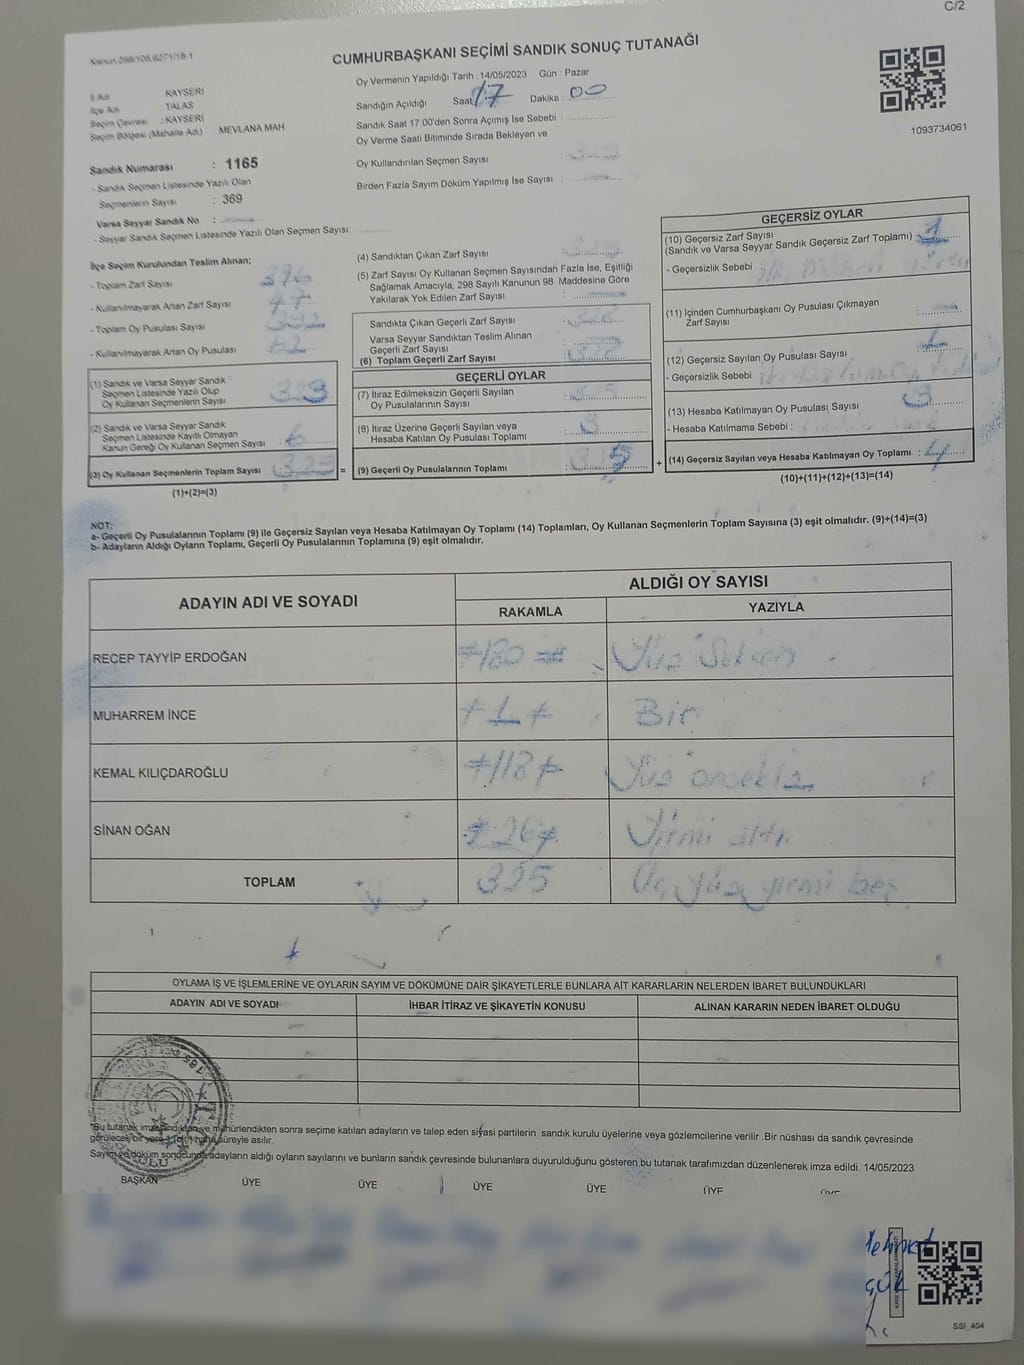 C/2
Kanun 298/105,6271/18-1
CUMHURBAŞKANI SEÇİMİ SANDIK SONUÇ TUTANAĞI
Oy Vermenin Yapıldığı Tarih :14/05/2023 Gün : Pazar
İl Adı KAYSERİ
İlçe Adı TALAS
Seçim Çevresi : KAYSERİ
Seçim Bölgesi (Mahalle Adı) MEVLANA MAH
Sandığın Açıldığı Saat 17 Dakika : 00
Sandık Saat 17.00'den Sonra Açımış İse Sebebi :
Oy Verme Saati Bitiminde Sırada Bekleyen ve
Oy Kullandırılan Seçmen Sayısı :
Birden Fazla Sayım Döküm Yapılmış İse Sayısı :
1093734061
Sandık Numarası : 1165
- Sandık Seçmen Listesinde Yazılı Olan
Seçmenlerin Sayısı : 369
Varsa Seyyar Sandık No :
- Seyyar Sandık Seçmen Listesinde Yazılı Olan Seçmen Sayısı:
İlçe Seçim Kurulundan Teslim Alınan;
- Toplam Zarf Sayısı
- Kullanılmayarak Artan Zarf Sayısı
- Toplam Oy Pusulası Sayısı
- Kullanılmayarak Artan Oy Pusulası
(1) Sandık ve Varsa Seyyar Sandık
Seçmen Listesinde Yazılı Olup
Oy Kullanan Seçmenlerin Sayısı 323
(2) Sandık ve Varsa Seyyar Sandık
Seçmen Listesinde Kayıtlı Olmayan
Kanun Gereği Oy Kullanan Seçmen Sayısı : 6
(3) Oy Kullanan Seçmenlerin Toplam Sayısı : 329 =
(1)+(2)=(3)
(4) Sandıktan Çıkan Zarf Sayısı
(5) Zarf Sayısı Oy Kullanan Seçmen Sayısından Fazla İse, Eşitliği
Sağlamak Amacıyla; 298 Sayılı Kanunun 98. Maddesine Göre
Yakılarak Yok Edilen Zarf Sayısı :
Sandıkta Çıkan Geçerli Zarf Sayısı :
Varsa Seyyar Sandıktan Teslim Alınan
Geçerli Zarf Sayısı
(6) Toplam Geçerli Zarf Sayısı :
GEÇERLİ OYLAR
(7) İtiraz Edilmeksizin Geçerli Sayılan
Oy Pusulalarının Sayısı :
(8) İtiraz Üzerine Geçerli Sayılan veya
Hesaba Katılan Oy Pusulası Toplamı :
(9) Geçerli Oy Pusulalarının Toplamı : +
GEÇERSİZ OYLAR
(10) Geçersiz Zarf Sayısı
(Sandık ve Varsa Seyyar Sandık Geçersiz Zarf Toplamı) : 1
- Geçersizlik Sebebi :
(11) İçinden Cumhurbaşkanı Oy Pusulası Çıkmayan
Zarf Sayısı :
(12) Geçersiz Sayılan Oy Pusulası Sayısı :
- Geçersizlik Sebebi
(13) Hesaba Katılmayan Oy Pusulası Sayısı : 3
- Hesaba Katılmama Sebebi :
(14) Geçersiz Sayılan veya Hesaba Katılmayan Oy Toplamı : 4
(10)+(11)+(12)+(13)=(14)
NOT:
a- Geçerli Oy Pusulalarının Toplamı (9) ile Geçersiz Sayılan veya Hesaba Katılmayan Oy Toplamı (14) Toplamları, Oy Kullanan Seçmenlerin Toplam Sayısına (3) eşit olmalıdır. (9)+(14)=(3)
b- Adayların Aldığı Oyların Toplamı, Geçerli Oy Pusulalarının Toplamına (9) eşit olmalıdır.
ADAYIN ADI VE SOYADI ALDIĞI OY SAYISI
RAKAMLA YAZIYLA
RECEP TAYYİP ERDOĞAN 180 Yüz Seksen
MUHARREM İNCE 1 Bir
KEMAL KILIÇDAROĞLU 118 Yüz onsekiz
SİNAN OĞAN 26 Yirmi altı
TOPLAM 325 Üç yüz yirmi beş
OYLAMA İŞ VE İŞLEMLERİNE VE OYLARIN SAYIM VE DÖKÜMÜNE DAİR ŞİKAYETLERLE BUNLARA AİT KARARLARIN NELERDEN İBARET BULUNDUKLARI
ADAYIN ADI VE SOYADI İHBAR İTİRAZ VE ŞİKAYETİN KONUSU ALINAN KARARIN NEDEN İBARET OLDUĞU
"Bu tutanak imzalandıktan ve mühürlendikten sonra seçime katılan adayların ve talep eden siyasi partilerin sandık kurulu üyelerine veya gözlemcilerine verilir .Bir nüshası da sandık çevresinde
görülecek bir yere 1 (bir) hafta süreyle asılır.
Sayım ve döküm sonucunda adayların aldığı oyların sayılarını ve bunların sandık çevresinde bulunanlara duyurulduğunu gösteren bu tutanak tarafımızdan düzenlenerek imza edildi. 14/05/2023
BAŞKAN ÜYE ÜYE ÜYE ÜYE ÜYE ÜYE
Mehmet
SSI_404